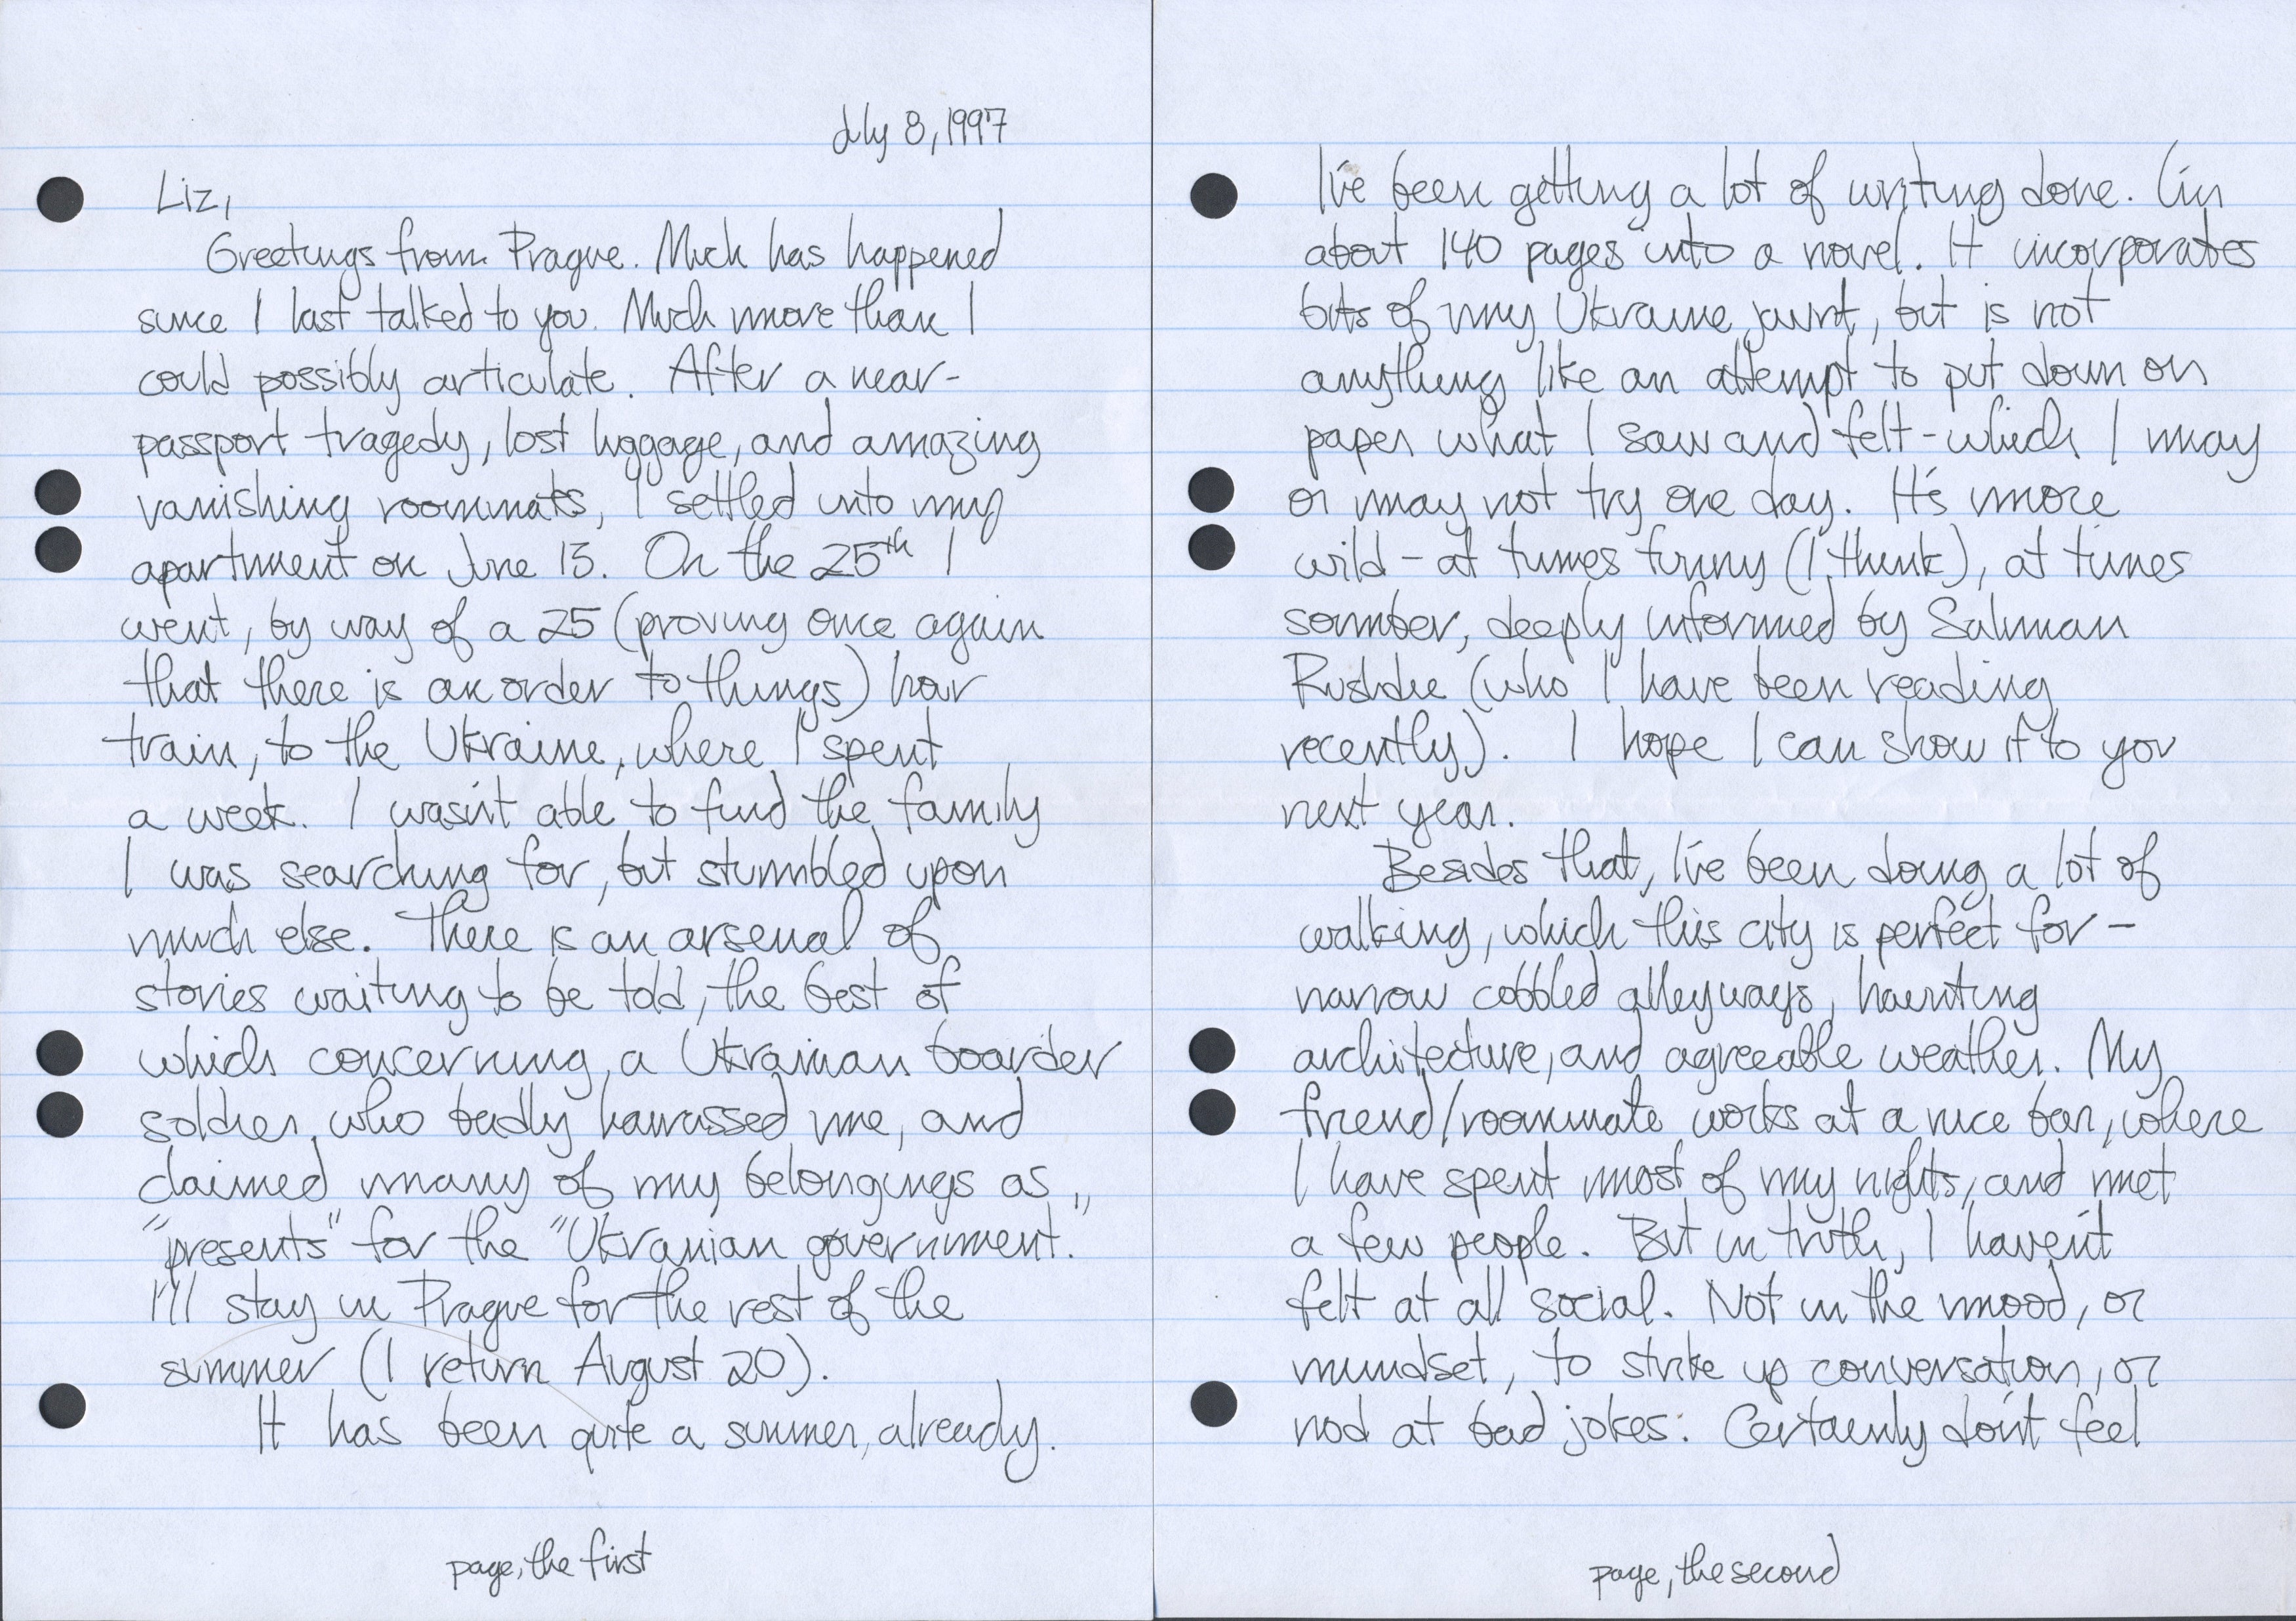 July 8, 1997
Liz,
Greetings from Prague. Much has happened
since I last talked to you. Much more than I
could possibly articulate. After a near-
passport tragedy, lost luggage, and amazing
vanishing roommats, I settled into my
apartment on June 15. On the 25th I
went, by way of a 25 (proving once again
that there is an order to things) hour
train, to the Ukraine, where I spent
a week. I wasn't able to find the family
I was searching for, but stumbled upon
much else. There is an arsenal of
stories waiting to be told, the best of
which concerning a Ukrainan boarder
soldier who badly harrassed me, and
claimed many of my belongings as
"presents" for the "Ukranian government."
I'll stay in Prague for the rest of the
summer (I return August 20).
It has been quite a summer, already.
page, the first
I've been getting a lot of writing done. I'm
about 140 pages into a novel. It incorporates
bits of my Ukraine jaunt, but is not
anything like an attempt to put down on
paper what I saw and felt - which I may
or may not try one day. It's more
wild - at times funny (I think), at times
somber, deeply informed by Salman
Rushdie (who I have been reading
recently). I hope I can show it to you
next year.
Besides that, I've been doing a lot of
walking, which this city is perfect for -
narrow cobbled alleyways, haunting
architecture, and agreeable weather. My
friend/roommate works at a nice bar, where
I have spent most of my nights, and met
a few people. But in truth, I haven't
felt at all social. Not in the mood, or
mindset, to strike up conversation, or
nod at bad jokes. Certainly don't feel
page, the second